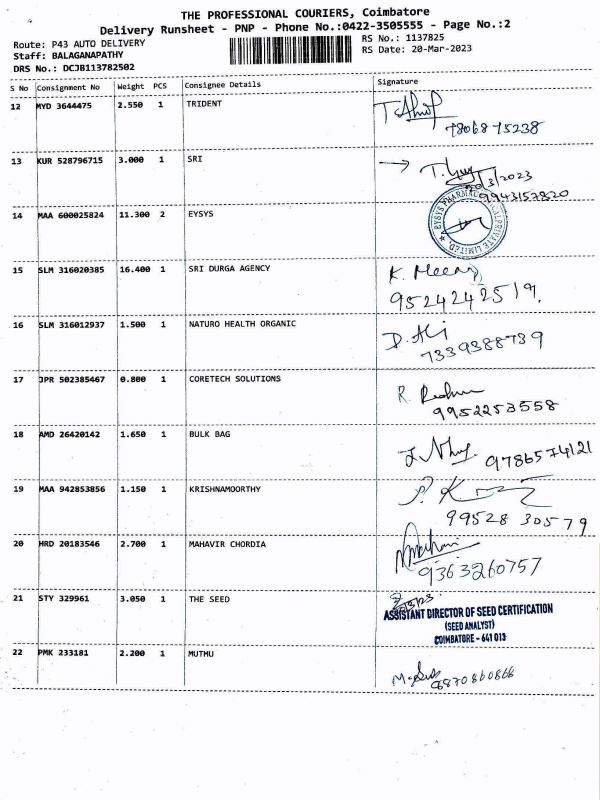 THE PROFESSIONAL COURIERS, Coimbatore
Delivery Runsheet - PNP - Phone No.:0422-3505555 - Page No.:2
Route: P43 AUTO DELIVERY
RS No.: 1137825
Staff: BALAGANAPATHY
RS Date: 20-Mar-2023
DRS No.: DCJB113782502
S No Consignment No Weight PCS Consignee Details Signature
12 MYD 3644475 2.550 1 TRIDENT
7806875238
13 KUR 528796715 3.000 1 SRI
/3/2023
9943157820
14 MAA 600025824 11.300 2 EYSYS
EYSYS PHARMACEUTICAL PRIVATE LIMITED
15 SLM 316020385 16.400 1 SRI DURGA AGENCY
K. Meena
9524242519.
16 SLM 316012937 1.500 1 NATURO HEALTH ORGANIC
D. Ali
7339388739
17 JPR 502385467 0.800 1 CORETECH SOLUTIONS
R.
9952253558
18 AMD 26420142 1.650 1 BULK BAG
9786574121
19 MAA 942853856 1.150 1 KRISHNAMOORTHY
99528 30579
20 HRD 20183546 2.700 1 MAHAVIR CHORDIA
9363260757
21 STY 329961 3.050 1 THE SEED
ASSISTANT DIRECTOR OF SEED CERTIFICATION
(SEED ANALYST)
COIMBATORE - 641 013
22 PMK 233181 2.200 1 MUTHU
9870860866